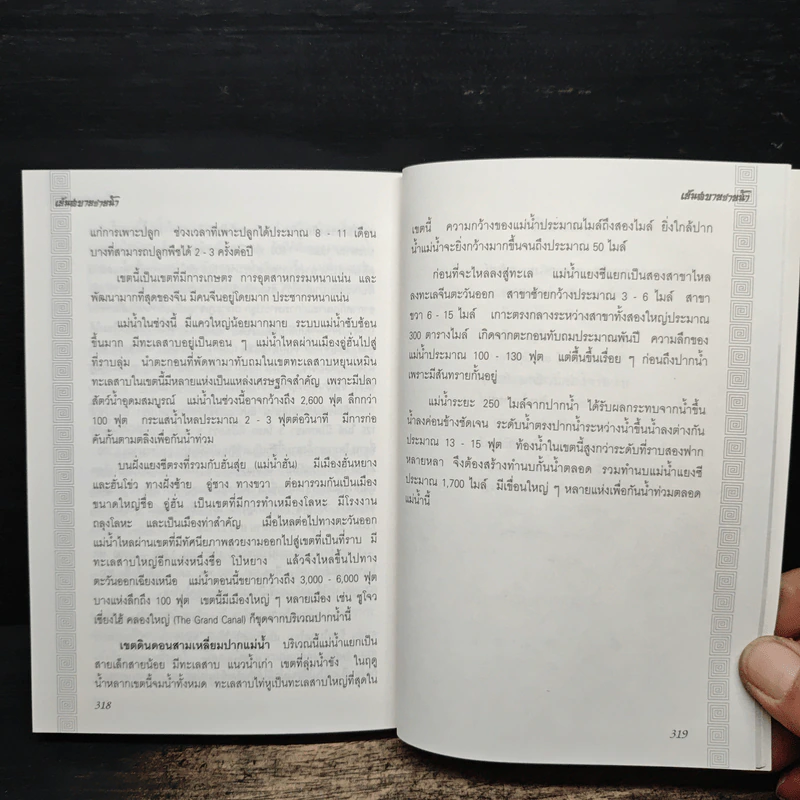 เย็นสบายชายน้ำ
แก่การเพาะปลูก ช่วงเวลาที่เพาะปลูกได้ประมาณ 8 - 11 เดือน
บางที่สามารถปลูกพืชได้ 2 - 3 ครั้งต่อปี
เขตนี้เป็นเขตที่มีการเกษตร การอุตสาหกรรมหนาแน่น และ
พัฒนามากที่สุดของจีน มีคนจีนอยู่โดยมาก ประชากรหนาแน่น
แม่น้ำในช่วงนี้ มีแควใหญ่น้อยมากมาย ระบบแม่น้ำซับซ้อน
ขึ้นมาก มีทะเลสาบอยู่เป็นตอน ๆ แม่น้ำไหลผ่านเมืองอู่ฮั่นไปสู่
ที่ราบลุ่ม นำตะกอนที่พัดพามาทับถมในเขตทะเลสาบหยุนเหมิน
ทะเลสาบในเขตนี้มีหลายแห่งเป็นแหล่งเศรษฐกิจสำคัญ เพราะมีปลา
สัตว์น้ำอุดมสมบูรณ์ แม่น้ำในช่วงนี้อาจกว้างถึง 2,600 ฟุต ลึกกว่า
100 ฟุต กระแสน้ำไหลประมาณ 2 - 3 ฟุตต่อวินาที มีการก่อ
คันกั้นตามตลิ่งเพื่อกันน้ำท่วม
บนฝั่งแยงซีตรงที่รวมกับฮั่นสุ่ย (แม่น้ำฮั่น) มีเมืองฮั่นหยาง
และฮั่นโข่ว ทางฝั่งซ้าย อู่ชาง ทางขวา ต่อมารวมกันเป็นเมือง
ขนาดใหญ่ชื่อ อู่ฮั่น เป็นเขตที่มีการทำเหมืองโลหะ มีโรงงาน
ถลุงโลหะ และเป็นเมืองท่าสำคัญ เมื่อไหลต่อไปทางตะวันออก
แม่น้ำไหลผ่านเขตที่มีทัศนียภาพสวยงามออกไปสู่เขตที่เป็นที่ราบ มี
ทะเลสาบใหญ่อีกแห่งหนึ่งชื่อ โป๋หยาง แล้วจึงไหลขึ้นไปทาง
ตะวันออกเฉียงเหนือ แม่น้ำตอนนี้ขยายกว้างถึง 3,000 - 6,000 ฟุต
บางแห่งลึกถึง 100 ฟุต เขตนี้มีเมืองใหญ่ ๆ หลายเมือง เช่น ซูโจว
เซี่ยงไฮ้ คลองใหญ่ (The Grand Canal) ก็ขุดจากบริเวณปากน้ำนี้
เขตดินดอนสามเหลี่ยมปากแม่น้ำ บริเวณนี้แม่น้ำแยกเป็น
สายเล็กสายน้อย มีทะเลสาบ แนวน้ำเก่า เขตที่ลุ่มน้ำขัง ในฤดู
น้ำหลากเขตนี้จมน้ำทั้งหมด ทะเลสาบไท่หูเป็นทะเลสาบใหญ่ที่สุดใน
318
เย็นสบายชายน้ำ
เขตนี้ ความกว้างของแม่น้ำประมาณไมล์ถึงสองไมล์ ยิ่งใกล้ปาก
น้ำแม่น้ำจะยิ่งกว้างมากขึ้นจนถึงประมาณ 50 ไมล์
ก่อนที่จะไหลลงสู่ทะเล แม่น้ำแยงซีแยกเป็นสองสาขาไหล
ลงทะเลจีนตะวันออก สาขาซ้ายกว้างประมาณ 3 - 6 ไมล์ สาขา
ขวา 6 - 15 ไมล์ เกาะตรงกลางระหว่างสาขาทั้งสองใหญ่ประมาณ
300 ตารางไมล์ เกิดจากตะกอนทับถมประมาณพันปี ความลึกของ
แม่น้ำประมาณ 100 - 130 ฟุต แต่ตื้นขึ้นเรื่อย ๆ ก่อนถึงปากน้ำ
เพราะมีสันทรายกั้นอยู่
แม่น้ำระยะ 250 ไมล์จากปากน้ำ ได้รับผลกระทบจากน้ำขึ้น
น้ำลงค่อนข้างชัดเจน ระดับน้ำตรงปากน้ำระหว่างน้ำขึ้นน้ำลงต่างกัน
ประมาณ 13 - 15 ฟุต ท้องน้ำในเขตนี้สูงกว่าระดับที่ราบสองฟาก
หลายหลา จึงต้องสร้างทำนบกั้นน้ำตลอด รวมทำนบแม่น้ำแยงซี
ประมาณ 1,700 ไมล์ มีเขื่อนใหญ่ ๆ หลายแห่งเพื่อกันน้ำท่วมตลอด
แม่น้ำนี้
319